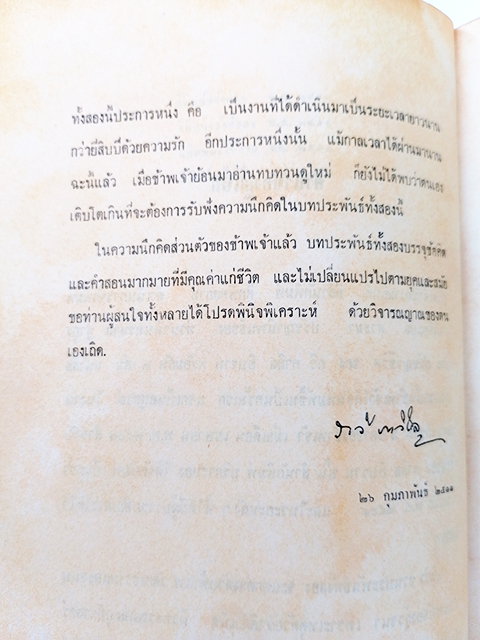 ทั้งสองนี้ประการหนึ่ง คือ เป็นงานที่ได้ดำเนินมาเป็นระยะเวลายาวนาน
กว่ายี่สิบปีด้วยความรัก อีกประการหนึ่งนั้น แม้กาลเวลาได้ผ่านมานาน
ฉะนี้แล้ว เมื่อข้าพเจ้าย้อนมาอ่านทบทวนดูใหม่ ก็ยังไม่ได้พบว่าตนเอง
เติบโตเกินที่จะต้องการรับฟังความนึกคิดในบทประพันธ์ทั้งสองนี้
ในความนึกคิดส่วนตัวของข้าพเจ้าแล้ว บทประพันธ์ทั้งสองบรรจุข้อคิด
และคำสอนมากมายที่มีคุณค่าแก่ชีวิต และไม่เปลี่ยนแปรไปตามยุคและสมัย
ขอท่านผู้สนใจทั้งหลายได้โปรดพินิจพิเคราะห์ ด้วยวิจารณญาณของตน
เองเถิด.
๒๖ กุมภาพันธ์ ๒๕๑๑